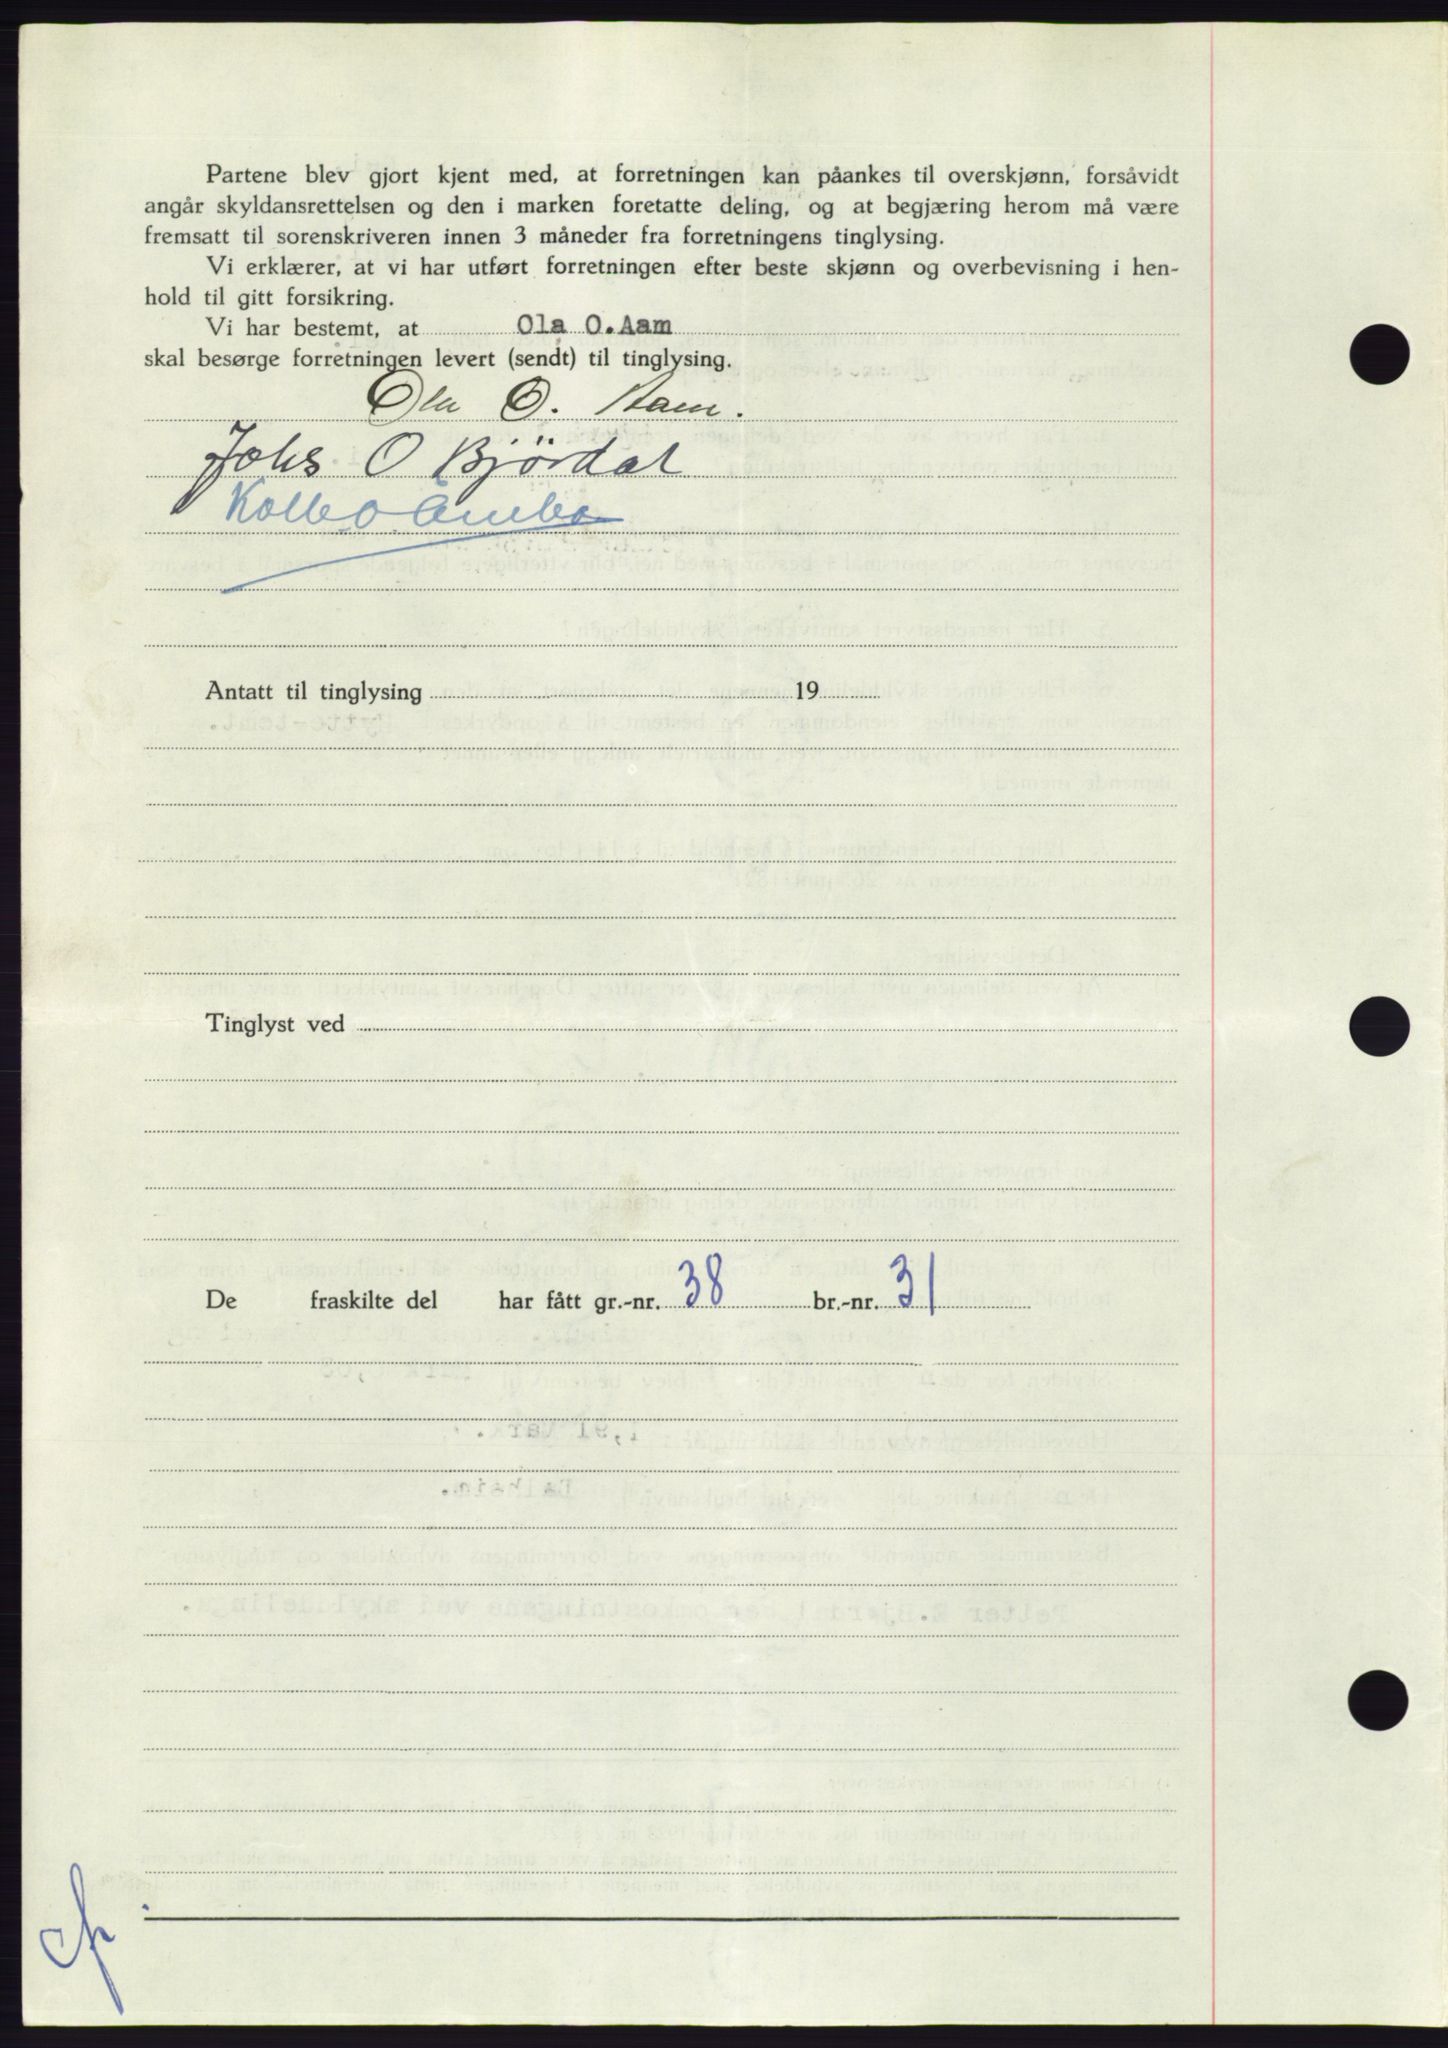 Partene blev gjort kjent med, at forretningen kan påankes til overskjønn, forsåvidt
angår skyldansrettelsen og den i marken foretatte deling, og at begjæring herom må være
fremsatt til sorenskriveren innen 3 måneder fra forretningens tinglysing.
Vi erklærer, at vi har utført forretningen efter beste skjønn og overbevisning i hen-
hold til gitt forsikring.
Vi har bestemt, at Ola O. Aam
skal besørge forretningen levert (sendt) til tinglysing.
Ola O. Aam.
Johs O Bjørdal
Antatt til tinglysing 19
Tinglyst ved
De fraskilte del har fått gr.-nr. 38 br.-nr. 31